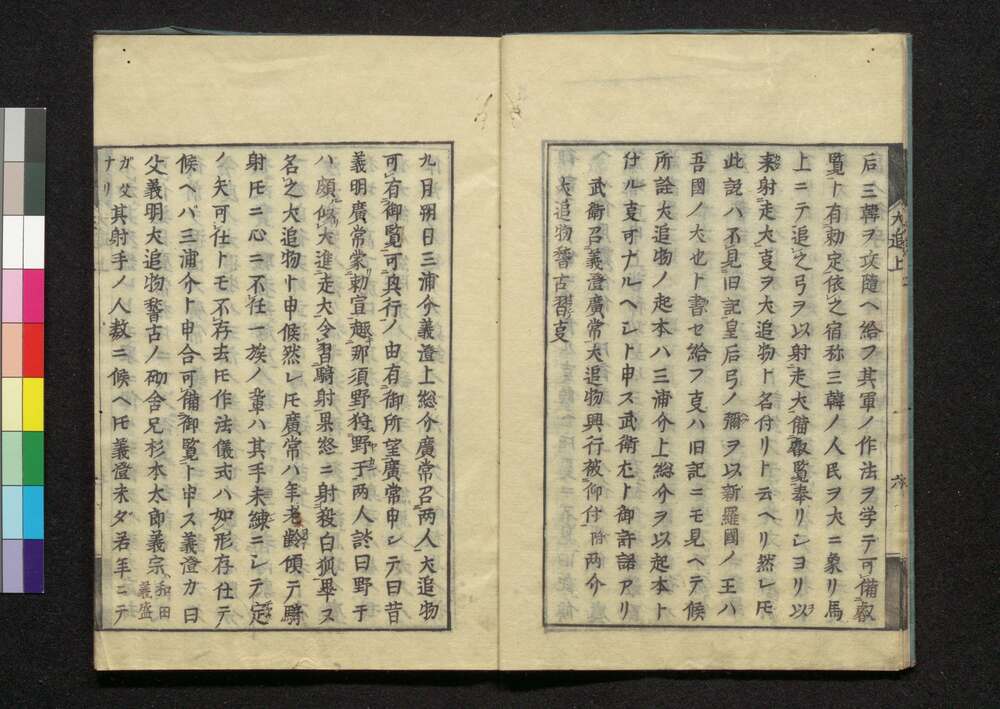 后三韓ヲ攻隨ヘ給フ其軍ノ作法ヲ学テ可備叡
覧ト有勅定依之宿祢三韓ノ人民ヲ犬ニ象リ馬
上ニテ追之弓ヲ以射走犬備叡覧奉リシヨリ以
来射走犬叓ヲ犬追物ト名付リト云ヘリ然レ𪜈
此説ハ不見旧記皇后弓ノ彌ヲ以新羅國ノ王ハ
吾國ノ犬也ト書セ給フ叓ハ旧記ニモ見ヘテ候
所詮犬追物ノ起本ハ三浦介上総介ヲ以起本ト
仕ル叓可ナルヘシト申ス武衛尤ト御許諾アリ
武衛召義澄廣常犬追物興行被仰付 両介
犬追物稽古習叓
犬追上
六
九月朔日三浦介義澄上総介廣常召両人犬追物
可有御覧可真行ノ由有御所望廣常申シテ曰昔
義明廣常蒙勅宣趣那須野狩野于両人談曰野于
ハ頗似犬進走犬令習騎射果怒ニ射殺白狐畢ス
名之犬追物ト申候然レ𪜈廣常ハ年老齢傾テ騎
射𪜈ニ心ニ不任一族ノ軰ハ其手未練ニシテ定
ノ矢可仕トモ不存去𪜈作法儀式ハ如形存仕テ
候ヘバ三浦介ト申合可備御覧ト申ス義澄カ曰
父義明犬追物稽古ノ砌舎兄杉本太郎義宗
和田義盛
ガ父
ナリ
其射手ノ人数ニ候ヘ𪜈義澄未ダ若年ニテ